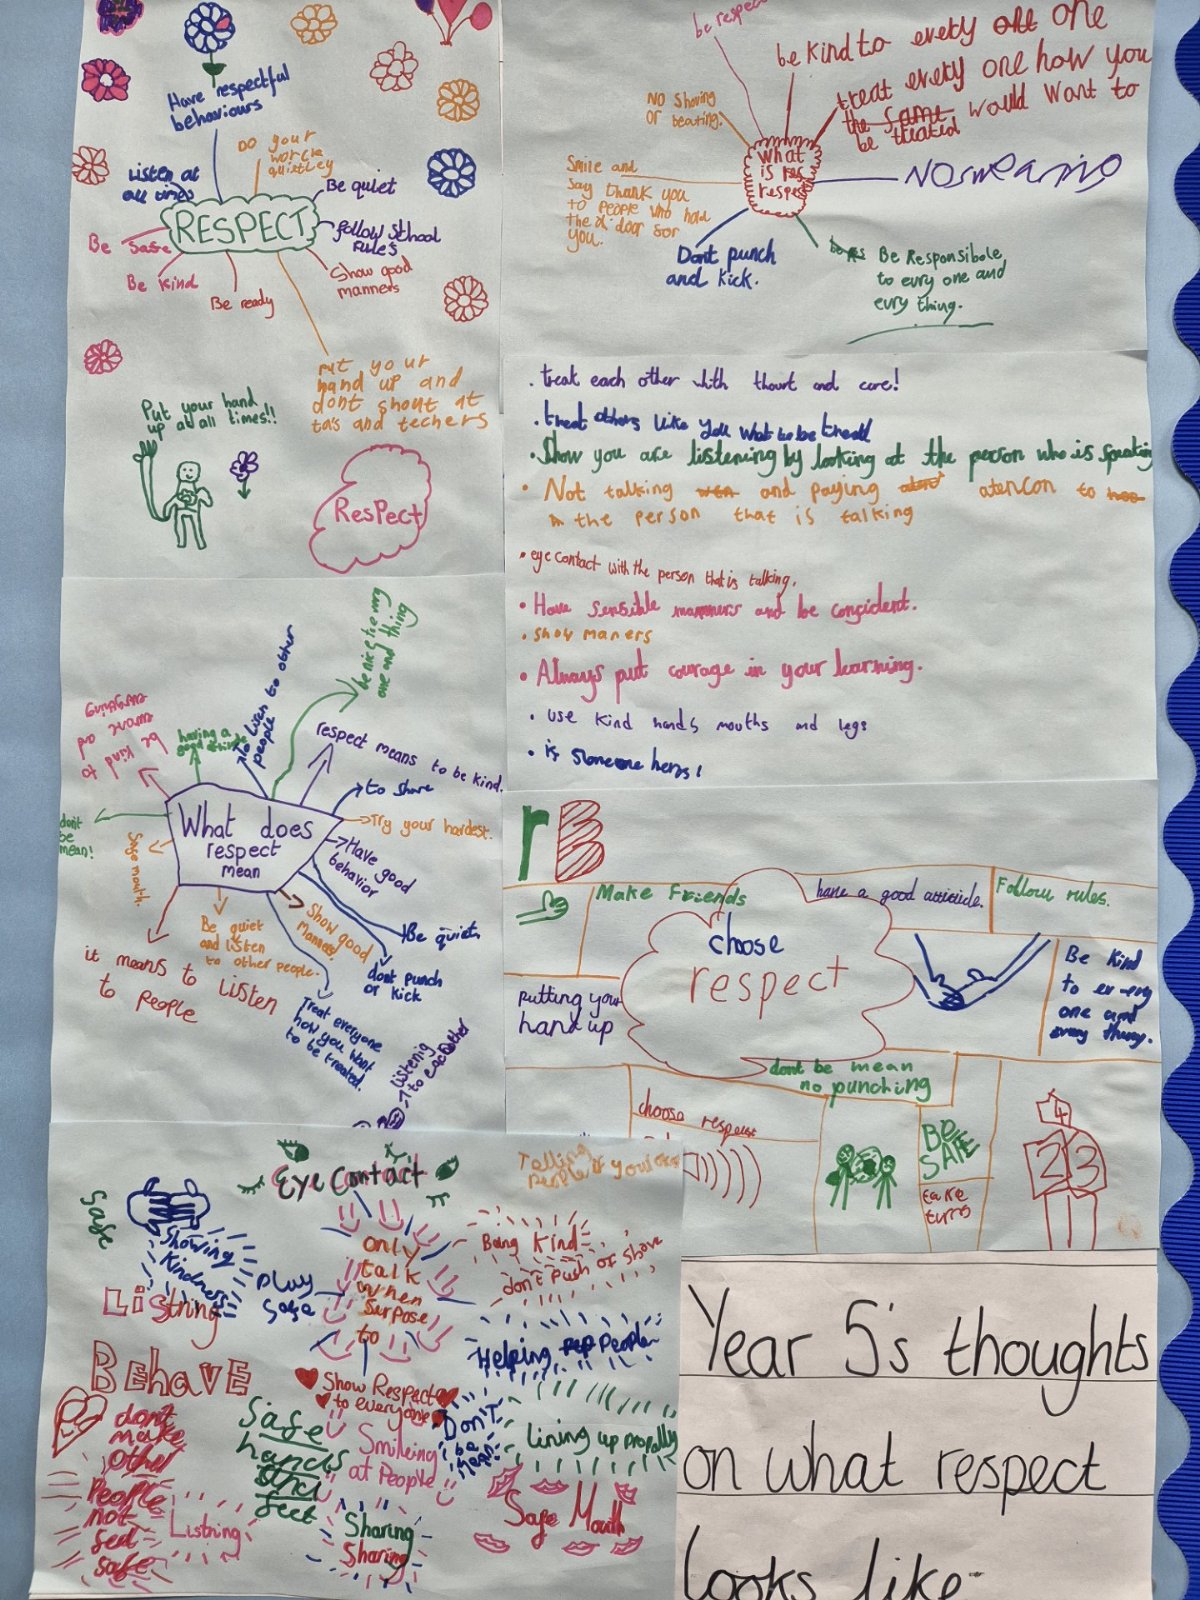 Have respectful
behaviours
DO your
worck
quietley
Listen at
all times
Be quiet
RESPECT
follow School
rules
Be safe
Be kind
Be ready
Show good
manners
put your
hand up and
dont shout at
ta's and techers
Put your hand
up at all times!!
ResPect
be respec
be kind to every one
treat every one how you
the same would want to
be treated
NO Shoving
or beating.
What
is res
respect
Smile and
say thank you
to people who hold
the door for
you.
NO swearing
Dont punch
and kick.
Be Responsibole
to eury one and
eury thing.
. treat each other with thourt and care!
. treat others like you what to be treatd
. Show you are listening by looking at the person who is speaking
. Not talking and paying atencon to
the person that is talking
. eye contact with the person that is talking.
. Have sensible manners and be confident.
. show maners
. Always put courage in your learning.
. use kind hands mouths and legs
. is someone hers!
be kind to
evreone and
evrything
having a
good atitude
to listen to other
people
be nice to evry
one and thing
respect means to be kind.
to share
Try your hardest.
Have good
behavior
What does
respect
mean
dont
be
mean!
Safe mouth
it means to listen
to people
Be quiet
and listen
to other people.
Show good
manners
Be quiet
dont punch
or kick
Treat everyone
how you want
to be treated.
listenig
to eachother
rB
Make Friends
have a good attiticide.
Follow rules.
choose
respect
putting your
hand up
Be kind
to every
one and
every thing.
dont be mean
no punching
choose respect
BE
SAFE
take
turns
4
2 3
Eye Contact
Safe
Showing
kindness
Listring
Play
safe
only
talk
when
surpose
to
Telling
people if your
Being kind
don't push or shove
Helping people
BEhAVE
Show Respect
to everyone
don't
make
other
People
not
feel
safe
Safe
hands
and
feet
Smileing
at People
Don't
be
mean
Lining up propally
Listning
Sharing
Sharing
Safe Mouth
Year 5's thoughts
on what respect
looks like-